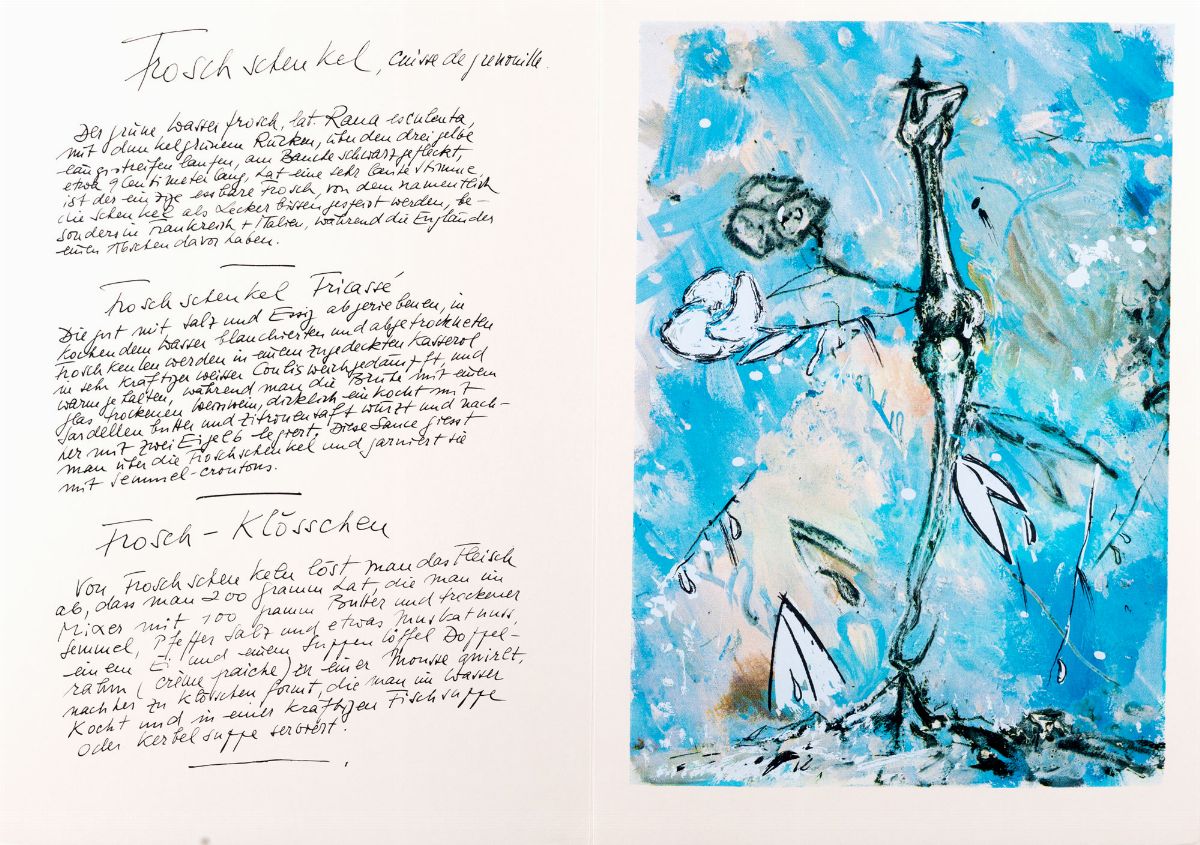 Froschschenkel, cuisse de grenouille.
Der grüne Wasserfrosch, lat. Rana esculenta,
mit dunkelgrünem Rücken, über den drei gelbe
längsstreifen laufen, am Bauche schwarz gefleckt,
etwa 9 Centimeter lang, hat eine sehr laute Stimme,
ist der einzige essbare Frosch, von dem namentlich
die Schenkel als Leckerbissen gespeist werden, be-
sonders in Frankreich + Italien, während die Engländer
einen Abscheu davor haben.
Froschschenkel Fricassé
Die gut mit Salz und Essig abgeriebenen, in
kochendem Wasser blanchierten und abgetrockneten
Froschkeulen werden in einem zugedeckten Kasserol
in sehr kräftiger weisser Coulis weichgedämpft und
warm gehalten, während man die Brühe mit einem
glas trockenen Weisswein, dicklich einkocht mit
Sardellenbutter und Zitronensaft würzt und nach-
her mit zwei Eigelb legiert. Diese Sauce giesst
man über die Froschschenkel und garniert sie
mit Semmel-croutons.
Frosch-Klösschen
Von Froschschenkeln löst man das Fleisch
ab, dass man 200 gramm hat, die man im
Mixer mit 100 gramm Butter und trockener
Semmel, Pfeffer Salz und etwas Muskatnuss,
einem Ei und einem Suppenlöffel Doppel-
rahm (crème fraiche) zu einer Mousse quirlt,
nachher zu Klöschen formt, die man im Wasser
kocht und in einer kräftigen Fischsuppe
oder Kerbelsuppe serviert.